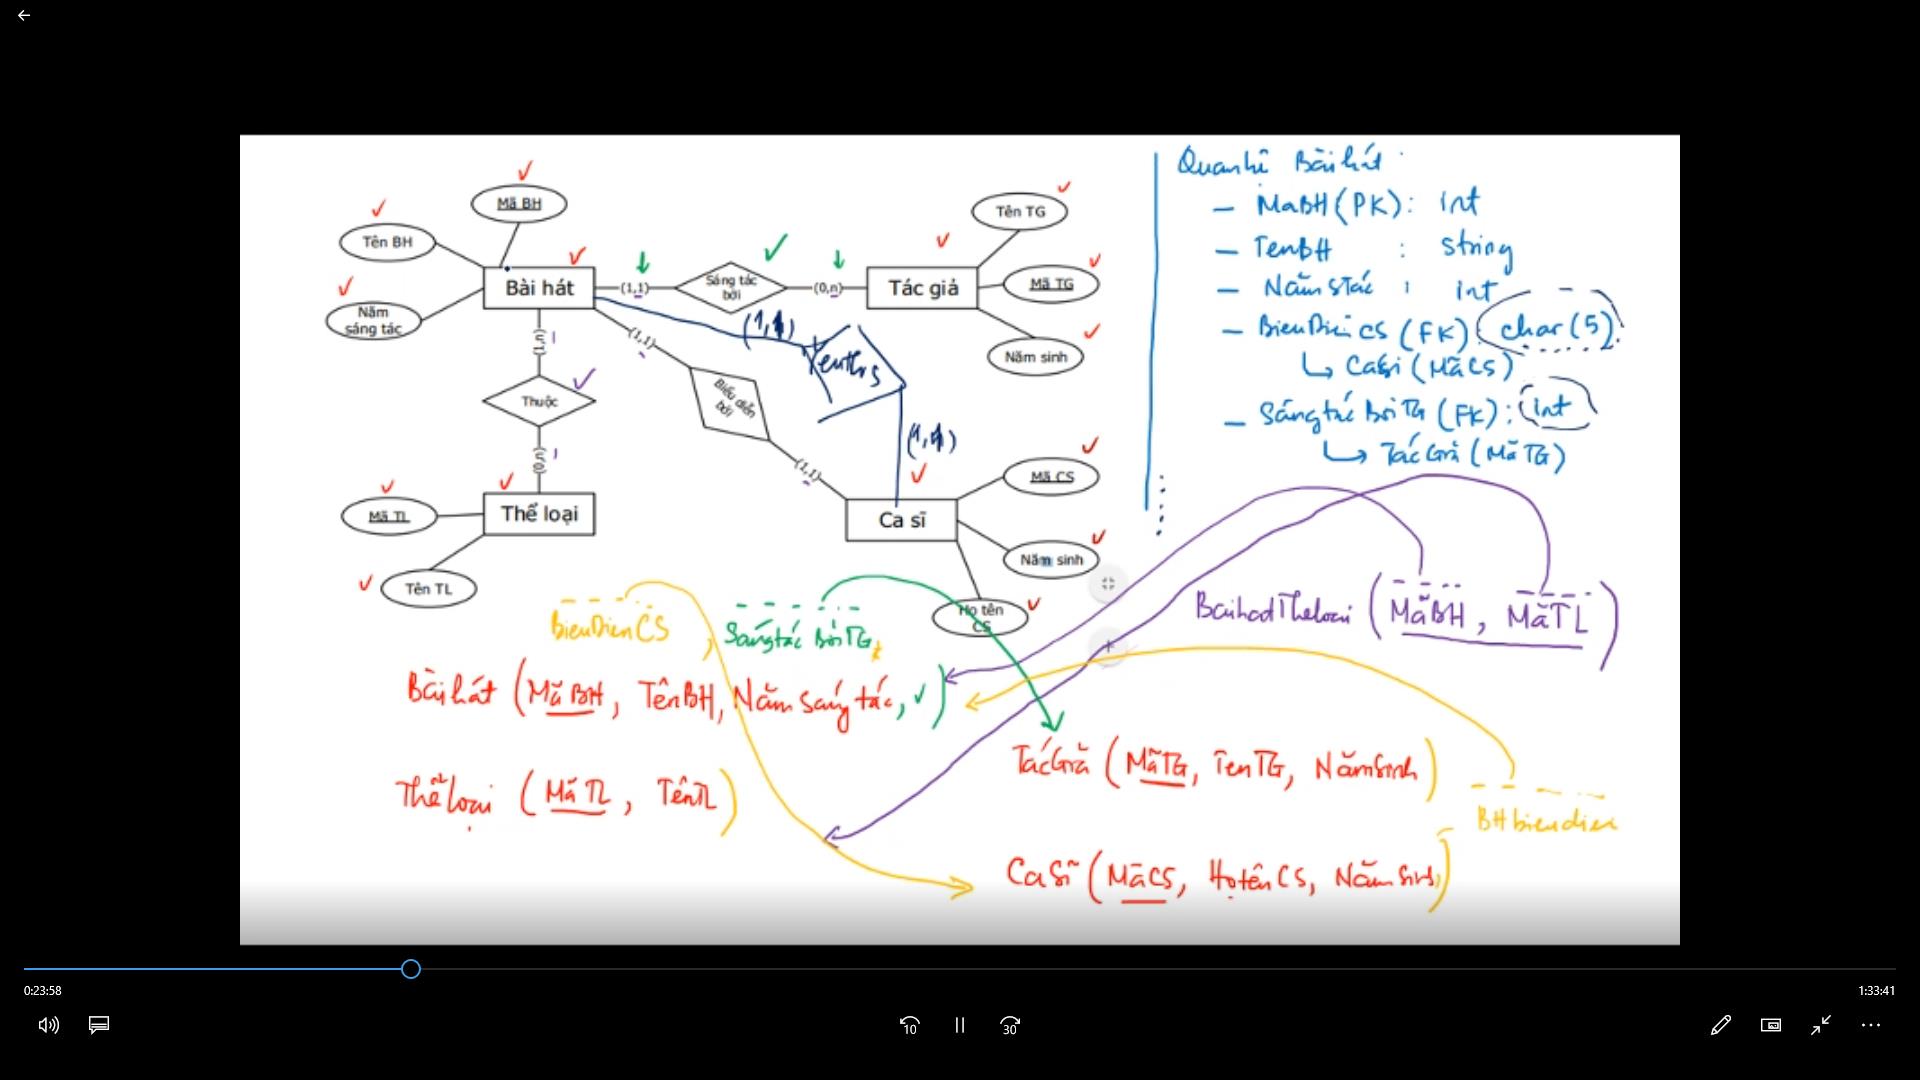 Mã BH
Tên BH
Năm
sáng tác
Bài hát
(1,1)
Sáng tác
bởi
(0,n)
Tác giả
Tên TG
Mã TG
Năm sinh
(1,n)
Thuộc
(0,n)
(1,1)
Biểu diễn
bởi
(1,1)
(1,1)
(1,1)
Thể loại
Mã TL
Tên TL
Ca sĩ
Mã CS
Năm sinh
Họ tên
CS
Quan hệ Bài hát
– MaBH (PK): int
– TenBH : string
– NămStác : int
– BieuDien CS (FK) char(5)
↳ CaSi (MãCS)
– Sángtác Bởi TG (FK): int
↳ TácGiả (Mã TG)
(MãBH, MãTL)
BieuDienCS, Sángtác BởiTG
Bài hát (Mã BH, TênBH, Năm sáng tác, )
Thể loại (Mã TL, TênTL)
TácGiả (MãTG, TenTG, NămSinh)
BHbieudien
Ca Sĩ (MãCS, HọtênCS, Năm Sinh)
0:23:58
1:33:41
10
30